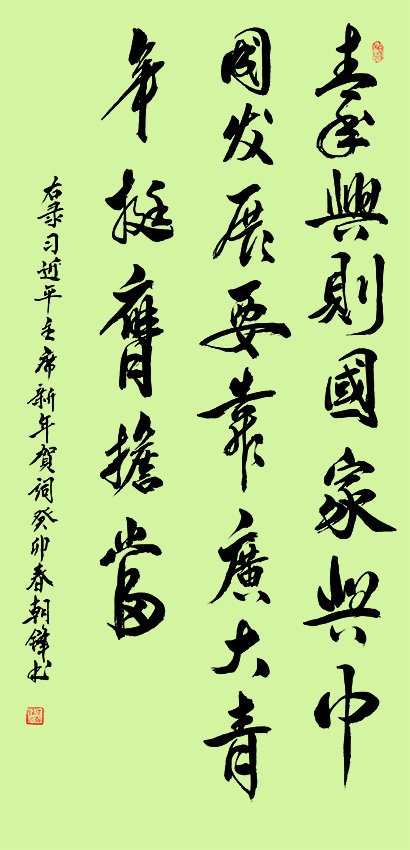 青年興則國家興中
國发展要靠廣大青
年挺膺擔當
右录习近平主席新年賀词癸卯春朝鋒书